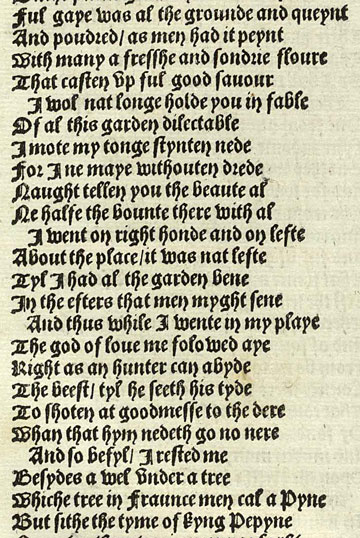 Ful gaye was al the grounde and queynt
And poudred/ as men had it peynt
With many a fresshe and sondrie floure
That casten vp ful good sauour
I wol nat longe holde you in fable
Of al this garden dilectable
I mote my tonge stynten nede
For I ne maye withouten drede
Naught tellen you the beaute al
Ne halfe the bounte there with al
I went on right honde and on lefte
About the place/it was nat lefte
Tyl I had al the garden bene
In the efters that men myght sene
And thus while I wente in my playe
The god of loue me folowed aye
Right as an hunter can abyde
The beest/ tyl he seeth his tyde
To shoten at goodmesse to the dere
Whan that hym nedeth go no nere
And so befyl/ I rested me
Besydes a wel vnder a tree
Whiche tree in Fraunce men cal a Pyne
But sithe the tyme of kyng Pepyne